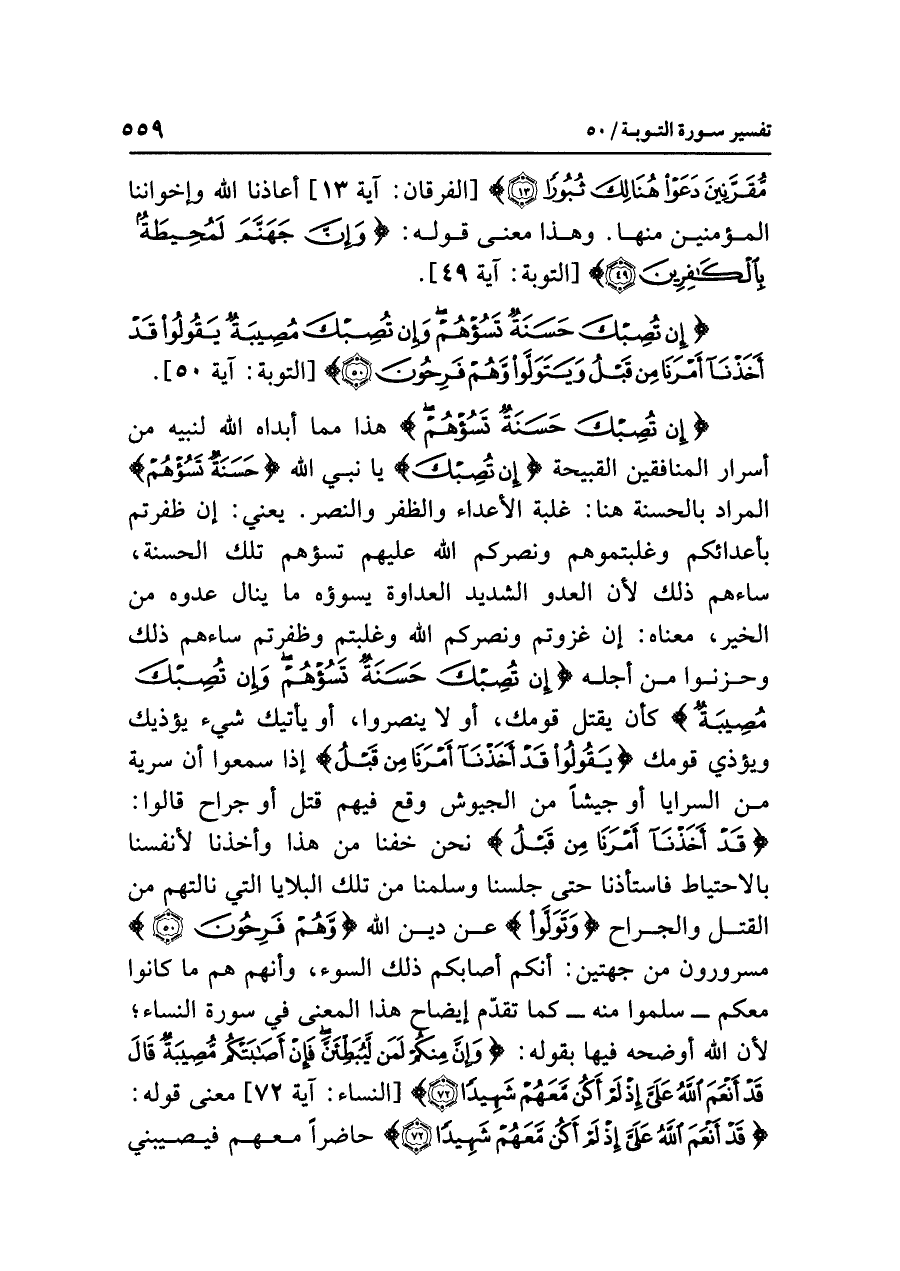 تفسير سورة التوبة / ٥٠ ٥٥٩
مُّقَرَّنِينَ دَعَوْاْ هُنَالِكَ ثُبُورًا ﴿١٣﴾﴾ [الفرقان: آية ١٣] أعاذنا الله وإخواننا
المؤمنين منها. وهذا معنى قوله: ﴿وَإِنَّ جَهَنَّمَ لَمُحِيطَةٌۢ
بِالْكَافِرِينَ ﴿٤٩﴾﴾ [التوبة: آية ٤٩].
﴿إِن تُصِبْكَ حَسَنَةٌ تَسُؤْهُمْ ۖ وَإِن تُصِبْكَ مُصِيبَةٌ يَقُولُواْ قَدْ
أَخَذْنَآ أَمْرَنَا مِن قَبْلُ وَيَتَوَلَّواْ وَّهُمْ فَرِحُونَ ﴿٥٠﴾﴾ [التوبة: آية ٥٠].
﴿إِن تُصِبْكَ حَسَنَةٌ تَسُؤْهُمْ ۖ﴾ هذا مما أبداه الله لنبيه من
أسرار المنافقين القبيحة ﴿إِن تُصِبْكَ﴾ يا نبي الله ﴿حَسَنَةٌ تَسُؤْهُمْ﴾
المراد بالحسنة هنا: غلبة الأعداء والظفر والنصر. يعني: إن ظفرتم
بأعدائكم وغلبتموهم ونصركم الله عليهم تسؤهم تلك الحسنة،
ساءهم ذلك لأن العدو الشديد العداوة يسوؤه ما ينال عدوه من
الخير، معناه: إن غزوتم ونصركم الله وغلبتم وظفرتم ساءهم ذلك
وحزنوا من أجله ﴿إِن تُصِبْكَ حَسَنَةٌ تَسُؤْهُمْ ۖ وَإِن تُصِبْكَ
مُصِيبَةٌ﴾ كأن يقتل قومك، أو لا ينصروا، أو يأتيك شيء يؤذيك
ويؤذي قومك ﴿يَقُولُواْ قَدْ أَخَذْنَآ أَمْرَنَا مِن قَبْلُ﴾ إذا سمعوا أن سرية
من السرايا أو جيشاً من الجيوش وقع فيهم قتل أو جراح قالوا:
﴿قَدْ أَخَذْنَآ أَمْرَنَا مِن قَبْلُ﴾ نحن خفنا من هذا وأخذنا لأنفسنا
بالاحتياط فاستأذنا حتى جلسنا وسلمنا من تلك البلايا التي نالتهم من
القتل والجراح ﴿وَتَوَلَّواْ﴾ عن دين الله ﴿وَّهُمْ فَرِحُونَ ﴿٥٠﴾﴾
مسرورون من جهتين: أنكم أصابكم ذلك السوء، وأنهم هم ما كانوا
معكم ــ سلموا منه ــ كما تقدّم إيضاح هذا المعنى في سورة النساء؛
لأن الله أوضحه فيها بقوله: ﴿وَإِنَّ مِنكُمْ لَمَن لَّيُبَطِّئَنَّ ۖ فَإِنْ أَصَابَتْكُم مُّصِيبَةٌ قَالَ
قَدْ أَنْعَمَ اللَّهُ عَلَىَّ إِذْ لَمْ أَكُن مَّعَهُمْ شَهِيدًا ﴿٧٢﴾﴾ [النساء: آية ٧٢] معنى قوله:
﴿قَدْ أَنْعَمَ اللَّهُ عَلَىَّ إِذْ لَمْ أَكُن مَّعَهُمْ شَهِيدًا ﴿٧٢﴾﴾ حاضراً معهم فيصيبني